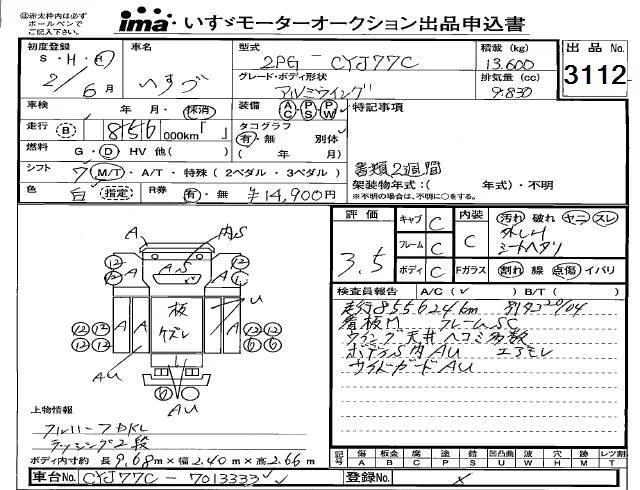 ※赤太枠内は必ず
ボールペンで
ご記入下さい。
ima・いすゞモーターオークション出品申込書
初度登録 S・H・R 2/6月
車名 いすゞ
型式 2PG-CYJ77C
積載(kg) 13,600
出品No. 3112
グレード・ボディ形状 アルミウイング
排気量(cc) 9,830
車検 年 月・抹消
装備 AC・PS・PW
特記事項
走行 B 856 000km「 」
タコグラフ 有・無 別体
( 年 月)
燃料 G・D HV 他( )
書類2週間
シフト 7 M/T・A/T・特殊(2ペダル・3ペダル)
架装物年式:( 年式)・不明
※不明の場合は、不明に○をする。
色 白 指定 R券 有・無 ¥14,900円
評価 3.5
キャブ C
フレーム C
ボディ C
内装 C
Fガラス
汚れ 破れ ヤニ スレ
シートヘタリ
割れ 線 点傷 イバリ
A 内S
12 12 AS 12
A A 板 ケズレ A A U
12 12 12 12
12 12 6 6
AU AU
検査員報告 A/C(✓) B/T( )
走行855624km 20/04
看板M フレームSC
ウイング天井ヘコミ多数
ボデー内AU エアモレ
サイドガードAU
上物情報
フルハーフDKL
ラッシング2段
ボディ内寸約 長9.68m×幅2.40m×高2.66m
記号 傷 A 板金 B 腐 C 塗 P 錆 S 凹凸曲 U 波 W 穴 H 跡 M レツ割 T
車台No. CYJ77C-7013333
登録No. ×